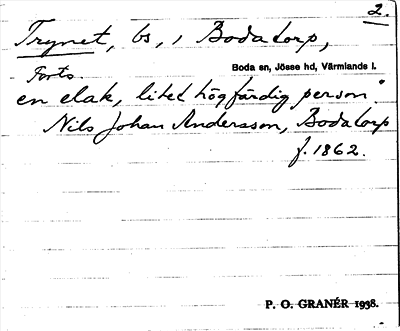 2.
Trynet, bs, i Boda torp,
Boda sn, Jösse hd, Värmlands l.
Forts.
en elak, litet högfärdig person"
Nils Johan Andersson, Bodatorp
f. 1862.
P. O. GRANÉR 1938.